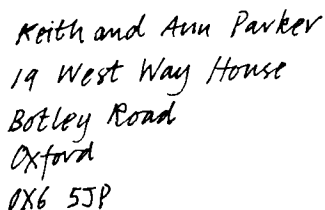 Keith and Ann Parker
19 West Way House
Botley Road
Oxford
OX6 5JP